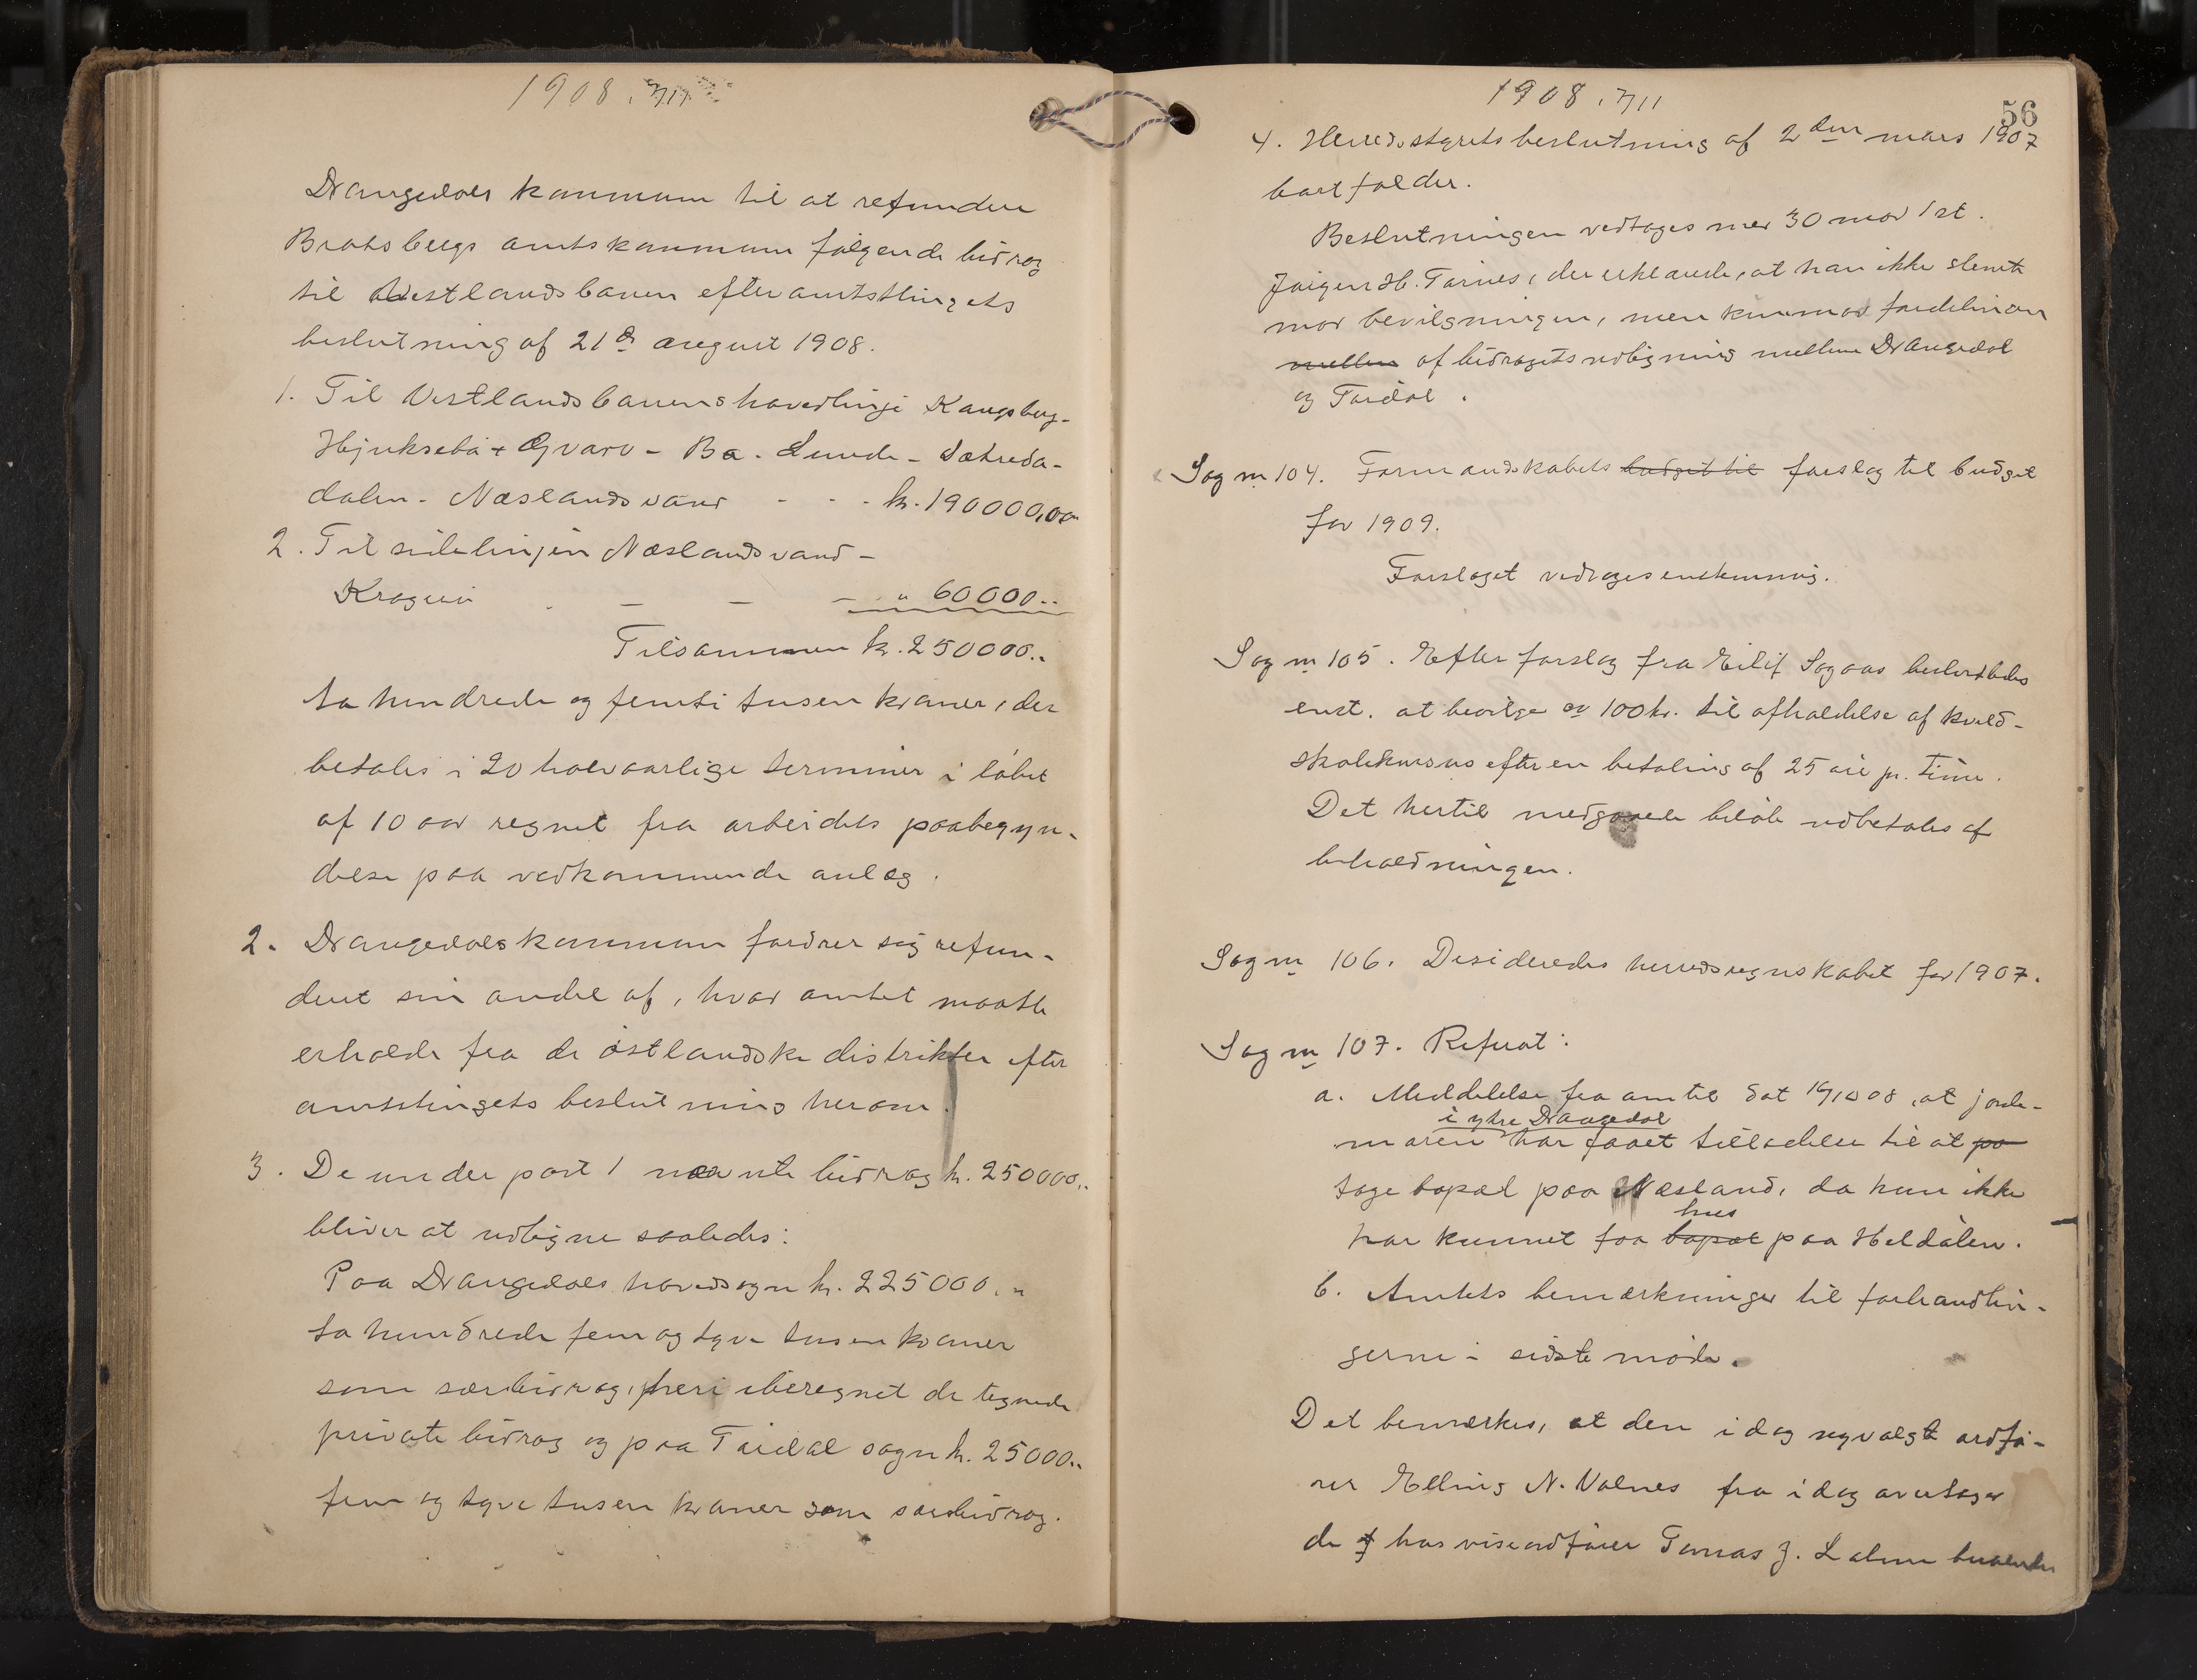 1908. 7/11
Drangedals kommune til at refundere
Bratsbergs amtskommune følgende bidrag
til Vestlandsbanen efter amtstingets
beslutning af 21de august 1908.
1. Til Vestlandsbanens hovedlinje Kongsberg-
Hjuksebø + Gvarv - Bø - Lunde - Sætreda-
dalen - Næslandsvand - - - kr. 190000,00
2. Til sidelinjen Næslandsvand -
Kragerø - - - - " 60000..
Tilsammen kr. 250000..
to hundrede og femti tusen kroner, der
betales i 20 halvaarlige terminer i løbet
af 10 aar regnet fra arbeidets paabegyn-
delse paa vedkommende anlæg.
2. Drangedals kommune fordrer sig refun-
dert sin andel af, hvad amtet maatte
erholde fra de østlandske distrikter efter
amtstingets beslutning herom.
3. De under post 1 nævnte bidrag kr. 250000..
bliver at udligne saaledes:
Paa Drangedals hovedsogn kr. 225000. "
to hundrede fem og tyve tusen kroner
som særbidrag, heri iberegnet de tegnede
private bidrag og paa Tørdal sogn kr. 25000..
fem og tyve tusen kroner som særbidrag.
1908. 7/11
56
4. Herredsstyrets beslutning af 2den mars 1907
bortfalder.
Beslutningen vedtages med 30 mod 1 st.
Jørgen H. Tørnes, der erklærede, at han ikke stemte
mod bevilgningen, men kun mod fordelingen
mellem af bidragets udligning mellem Drangedal
og Tørdal.
Sag nr 104. Formandskabets budget til forslag til budget
for 1909.
Forslaget vedtages enstemmig.
Sag nr 105. Efter forslag fra Eilif Sogaas besluttedes
enst. at bevilge 100 kr. til afholdelse af kveld-
skolekursus efter en betaling af 25 øre pr. time.
Det hertil medgaaede beløb udbetales af
beholdningen.
Sag nr 106. Desideredes herredsregnskabet for 1907.
Sag nr 107. Referat:
a. Meddelelse fra amtet dat 16/10 08, at jorde-
i ytre Drangedal
moren har faaet tilladelse til at pa
tage bopæl paa Næsland, da hun ikke
hus
har kunnet faa bopæl paa Heldalen.
b. Amtets bemærkninger til forhandlin-
gerne i sidste møde.
Det bemerkes, at den i dag nyvalgte ordfø-
rer Elling N. Valnes fra i dag overtager
de hos viseordfører Tomas J. Lahm beroende